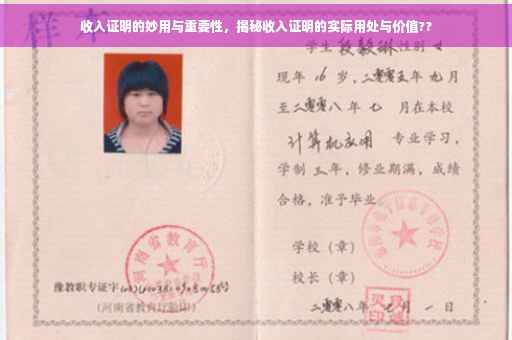 收入证明的妙用与重要性，揭秘收入证明的实际用处与价值??
样本
学生段毅琳性别女
现年16岁，二零零五年九月
至二零零八年七月在本校
计算机应用专业学习，
学制三年，修业期满，成绩
合格，准予毕业
学校（章）
校长（章）
二零零八年 月一日
河南省教育厅
豫教职专证字
（河南省教育厅验印）